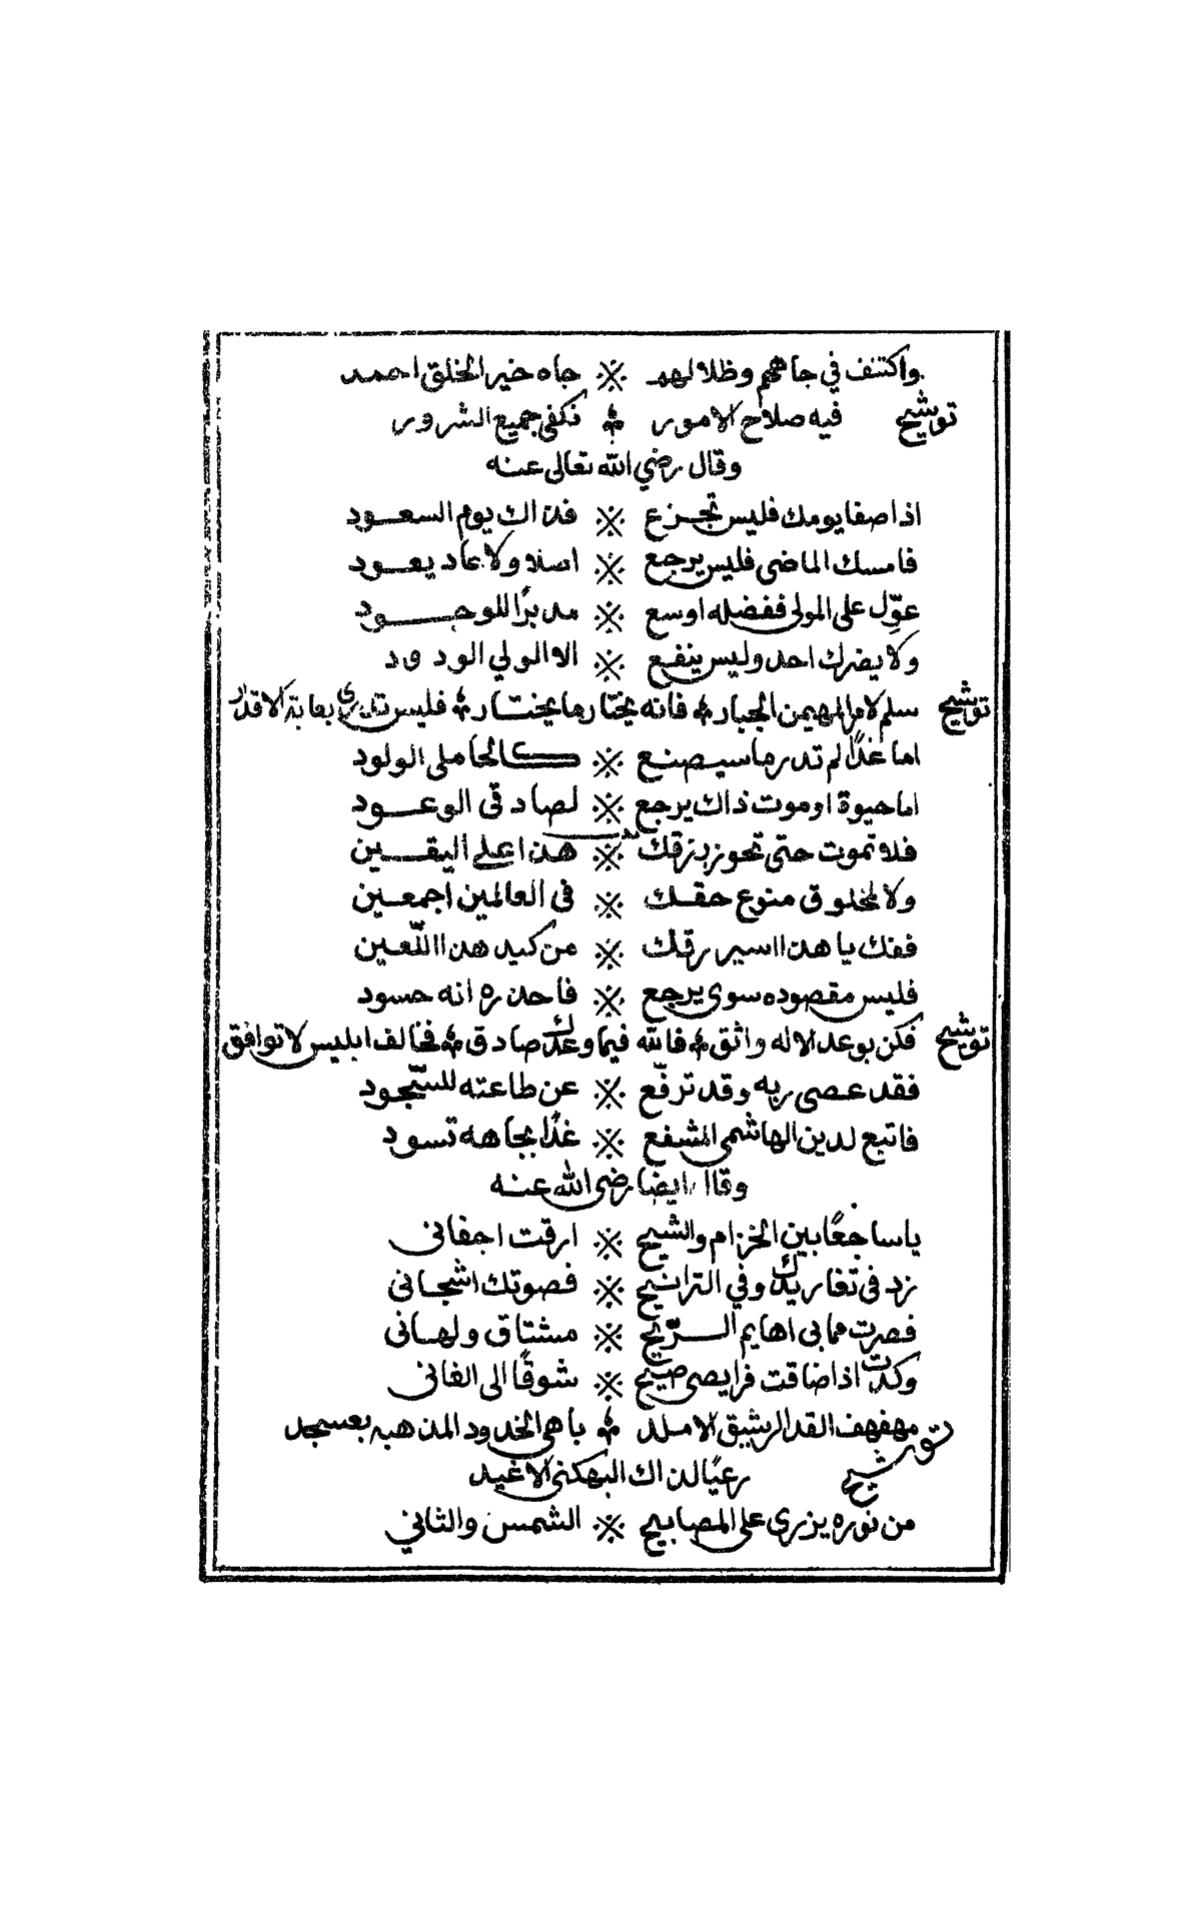 واكتنف في جاههم وظلالهم ※ جاه خير الخلق احمد
توشيح فيه صلاح الامور ؞ فكفى جميع الشرور
وقال رضي الله تعالى عنه
اذا صفا يومك فليس تجزع ※ فذاك يوم السعود
فامسك الماضى فليس يرجع ※ اصلا ولا عاد يعود
عوّل على المولى ففضله اوسع ※ مدبرًا للوجود
ولا يضرك احد وليس ينفع ※ الا المولي الودود
توشيح سلم لامر المهيمن الجبار ؞ فانه يختار ما يختار ؞ فليس تدرى بعاية الاقدار
اما غدًا لم تدر ما سيصنع ※ كالحامل الولود
اما حيوة او موت ذاك يرجع ※ لصادق الوعود
فلا تموت حتى تحوز رزقك ※ هذا على اليقين
ولا لمخلوق منوع حقك ※ فى العالمين اجمعين
ففك يا هذا اسير رقك ※ من كيد هذا اللّعين
فليس مقصوده سوى يرجع ※ فاحذره انه حسود
توشيح فكن بوعد الاله واثق ؞ فالله فيما وعدك صادق ؞ فخالف ابليس لا توافق
فقد عصى ربه وقد ترفّع ※ عن طاعته للسّجود
فاتبع لدين الهاشمى المشفع ※ غدًا بجاهه تسود
وقال ايضا رضى الله عنه
يا ساجعًا بين الخزام والشيح ※ ارقت اجفانى
زد فى تغاريدك وفي الترانيح ※ فصوتك اشجانى
فصرت مما بى اهايم الرّيح ※ مشتاق ولهانى
وكدت اذا ضاقت فرايصى صيح ※ شوقًا الى الفانى
توشيح مهفهف القد الرشيق الاملد ؞ باهى الخدود المذهبه بعسجد
رعيًا لذاك البهكنى الاغيد
من نوره يزرى على المصابيح ※ الشمس والثاني